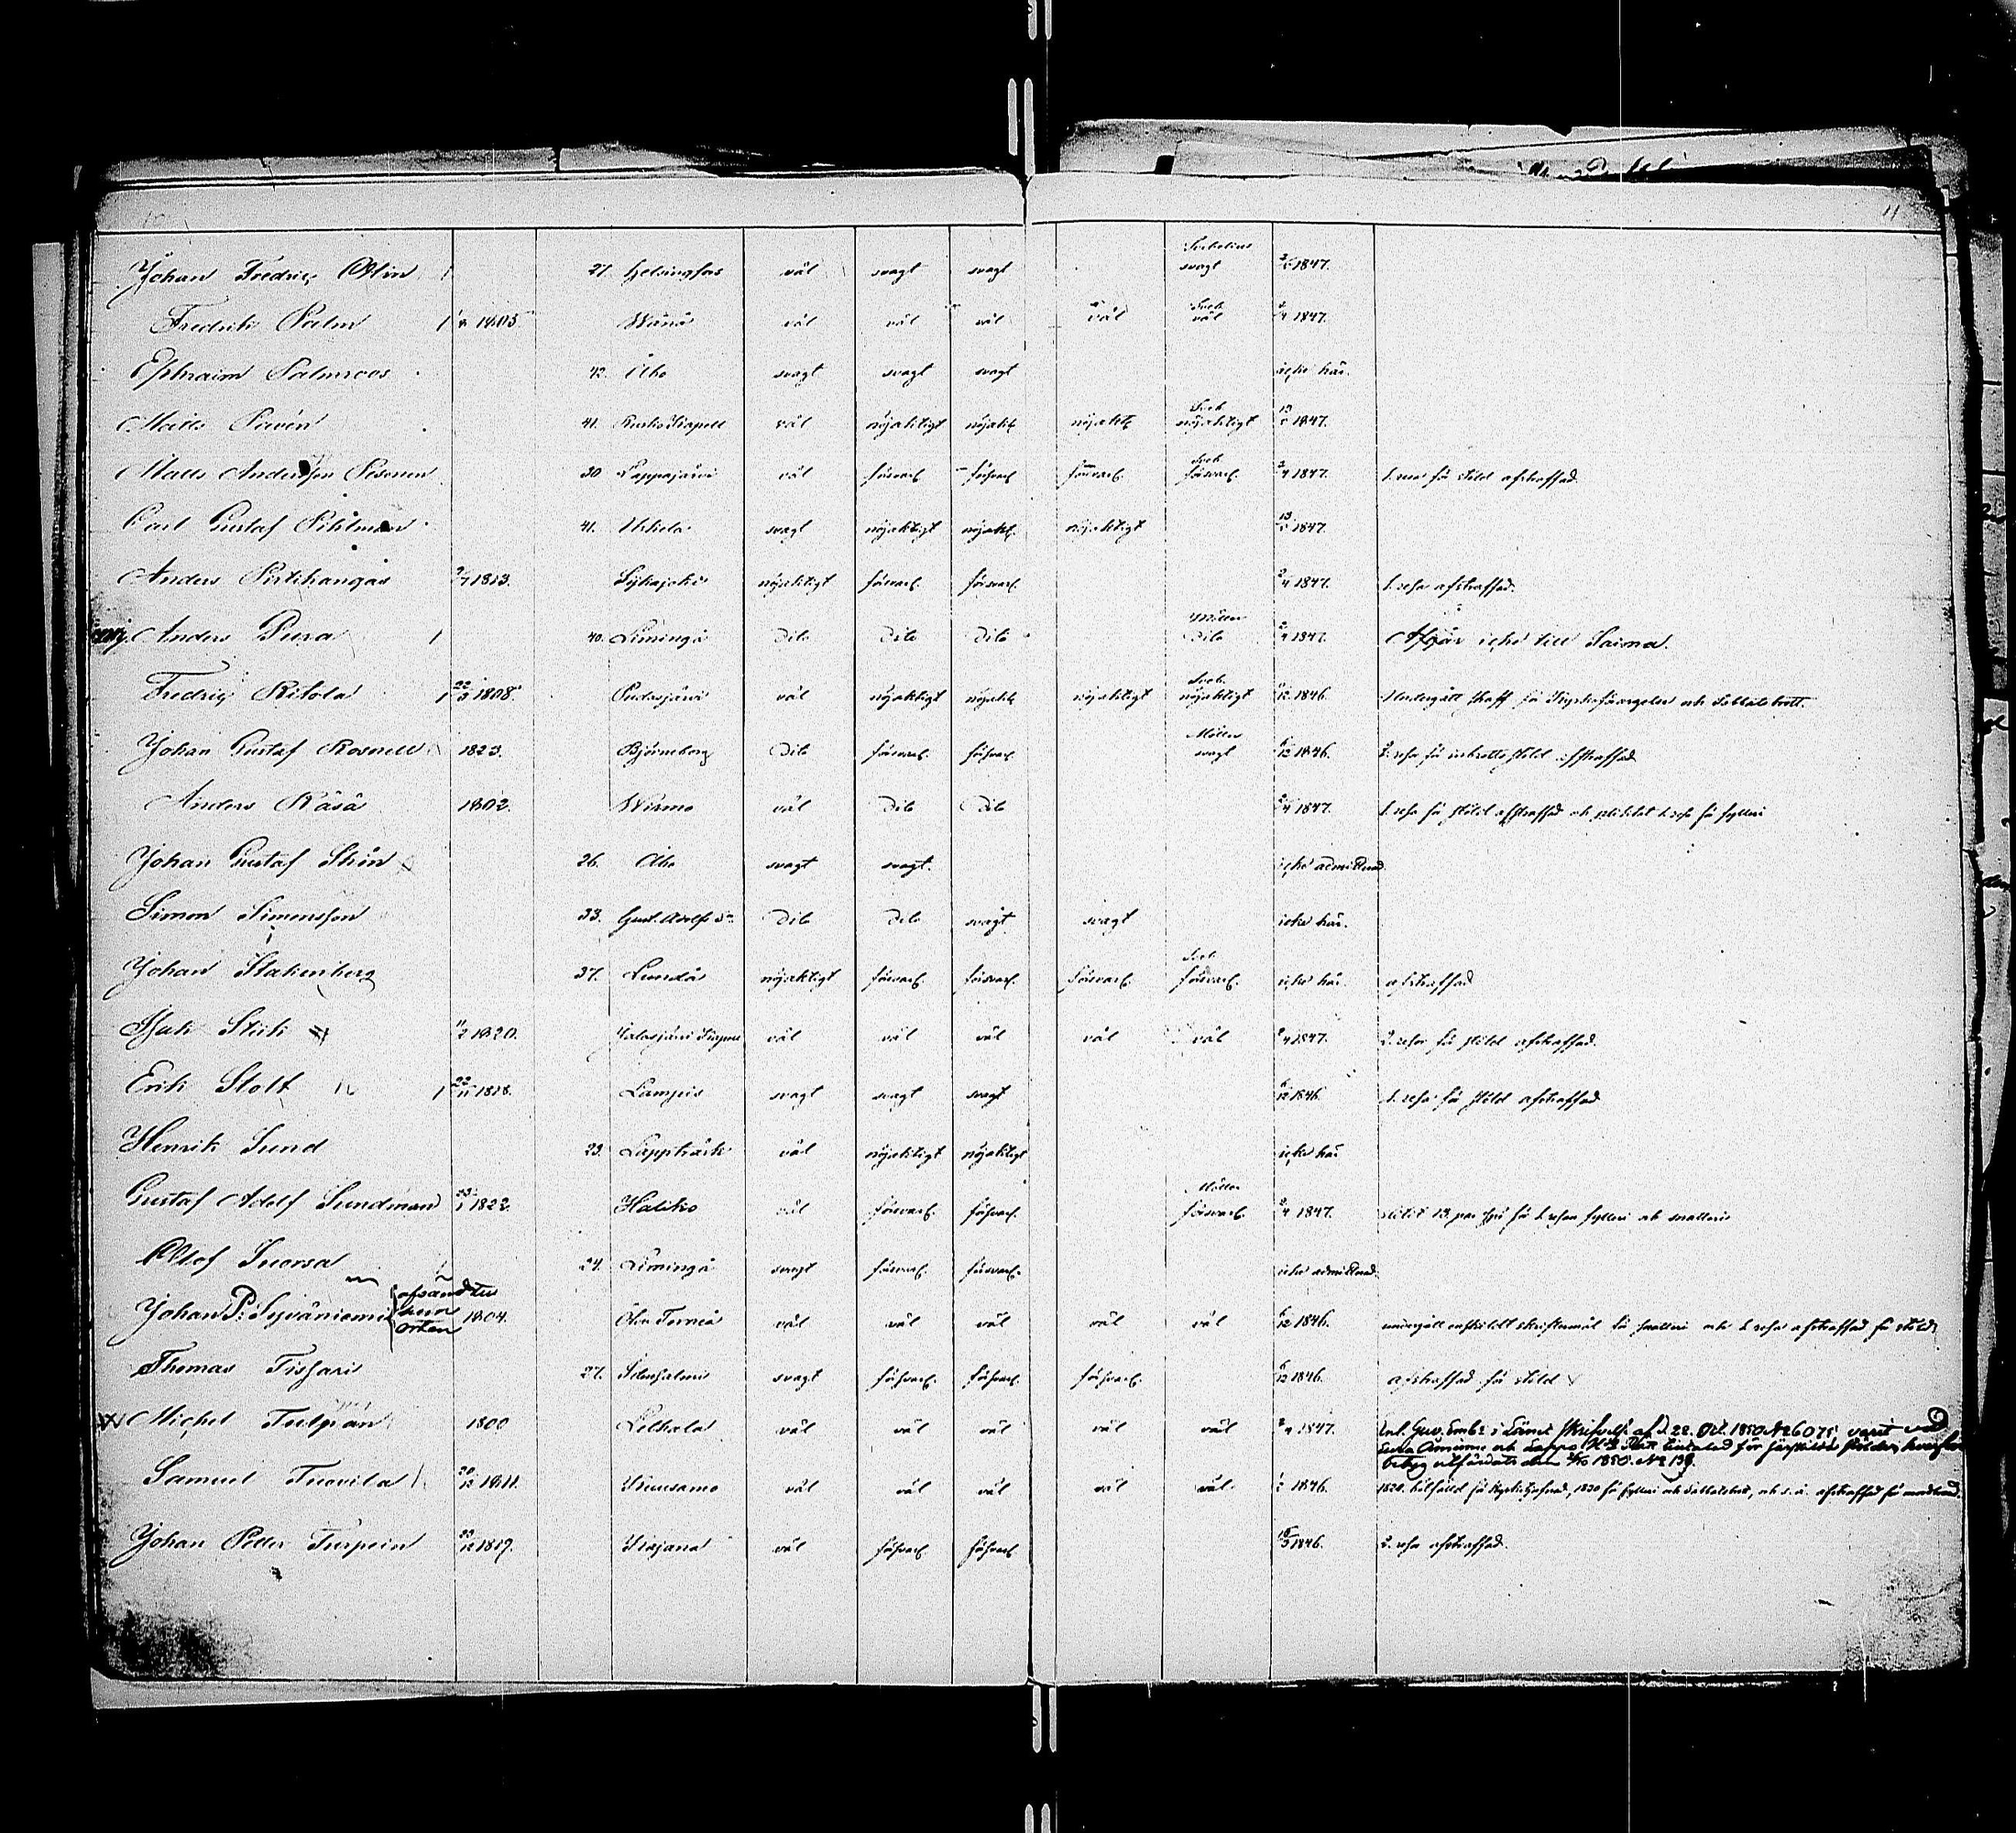 11
Johan Fredric Oflin 27. Helsingfors väl svagt svagt svagt 1847.
Fredrik Palm 1805. Wånå väl väl väl väl väl 2/4 1847.
Ephraim Palmroos 42. Åbo svagt svagt svagt icke här.
Matts Pavén 41. Kapell väl nöjaktigt nöjakt nöjakt nöjaktigt 1847.
Matts Andersson Pesonen 30 Lappajärvi väl försvarl. försvarl försvarl. försvarl. 2/4 1847. 1. resa för stöld afstraffad.
Carl Gustaf Pihlman 41. Urkela svagt nöjaktigt nöjakt. nöjaktigt 1847
Anders Pirtihangas 1813. Sijkajoki nöjaktigt försvarl. försvarl. 2/4 1847. 1. resa afstraffad.
Anders Pura 40. Limingå Dito Dito Dito Möller Dito 2/4 1847. Afgår icke till Saima.
Fredric Ritola 22/3 1808. Pudasjärvi väl nöjaktigt nöjakt nöjaktigt nöjaktigt 12 1846. Undergått straff för och Sabbatsbrott.
Johan Gustaf Rosnell 1823. Björneborg Dito försvarl. försvarl Möller svagt 6/12 1846. 2. resa för inbrotts stöld afstraffad
Anders Räsä 1802. Wirmo väl Dito Dito 2/4 1847. 1. resa för stöld afstraffad och pliktat 1. resa för fylleri
Johan Gustaf Skön 26. Åbo svagt svagt. icke admitterad.
Simon Simonsson 33. Gust. Adolfs Dito Dito svagt svagt icke här.
Johan Stakenberg 37. Lundå nöjaktigt försvarl. försvarl. försvarl. försvarl. icke här. afstraffad
Isak Stük 11/2 1820. Jalasjärvi väl väl väl väl väl 2/4 1847. 2. resor för stöld afstraffad.
Erik Stolt 22/11 1818. Lampis svagt svagt svagt 6/12 1846. 1. resa för stöld afstraffad
Henrik Sund 23. Lappträsk väl nöjaktigt nöjaktigt icke här
Gustaf Adolf Sundman 1822. Haliko väl försvarl. försvarl. Möller försvarl. 2/4 1847. slitit 13. par spö för 1. resan fylleri och snatteri
Olof Suorsa 24. Limingå svagt försvarl. försvarl. icke admitterad.
Johan P: Syväniemi afsänd till hem orten 1804. Öfver Torneå väl väl väl väl väl 6/12 1846. undergått enskildt skriftermål för snatteri och 1. resa afstraffad för stöld
Thomas Tissari 27. Idensalmi svagt försvarl. försvarl. försvarl. 6/12 1846. afstraffad för stöld
Michel Tulpiän 1800 Letkala väl väl väl väl väl 2/4 1847. Enl. Guv. Embe i Länet skrifvelse af d. 22. Oct. 1850 No 6075 varit vid
och Lappo Hds Rätt tilltalad för särskilda stölder, hvarför
betyg utfärdats den 2/10 1850. No 139.
Samuel Tuovila 20/12 1811. Kuusamo väl väl väl väl väl 1846. 1828. bötfäld för 1830 för fylleri och Sabbatsbrott, och s. å. afstraffad för
Johan Petter Turpein 23/12 1819. Kajana väl försvarl. försvarl 1846. 2. resa afstraffad.